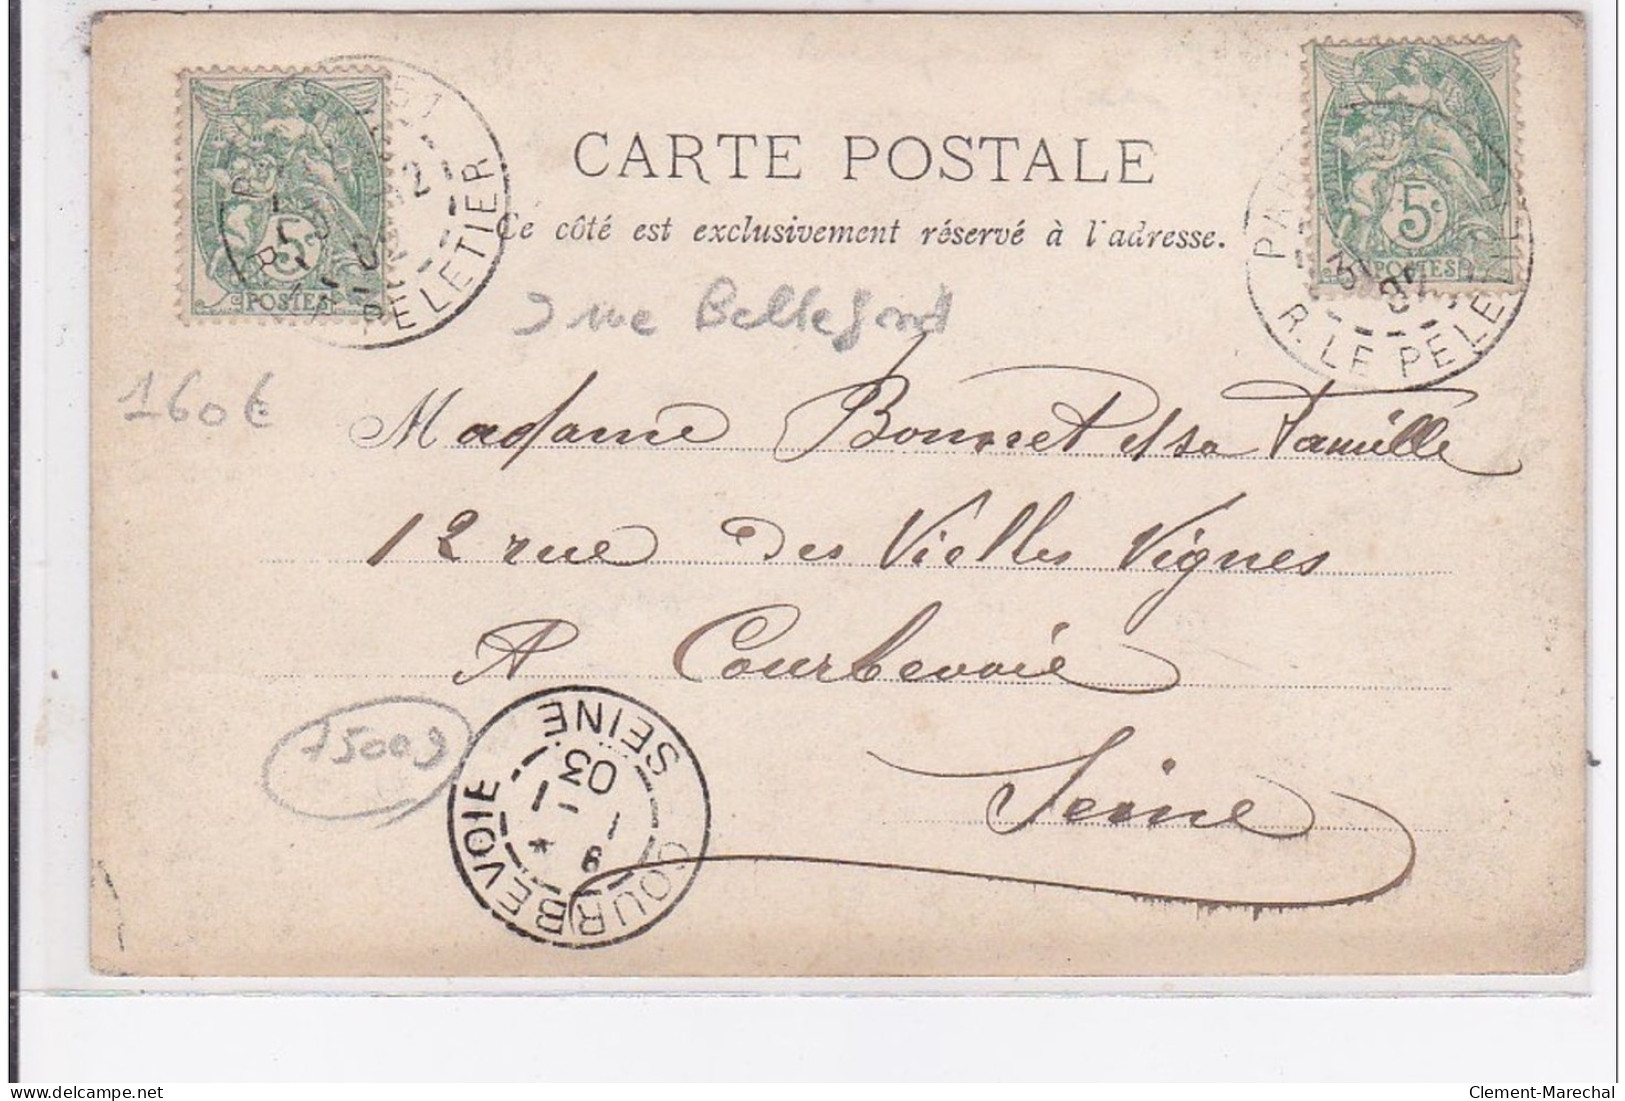 CARTE POSTALE
Ce côté est exclusivement réservé à l'adresse.
5c
POSTES
5c
POSTES
PELETIER
R. LE PELE
3 rue Bellefond
160€
Madame Bonnet et sa Famille
12 rue des Vielles Vignes
A Courbevoie
Seine
75009
COURBEVOIE
SEINE
03
Clement-Marechal